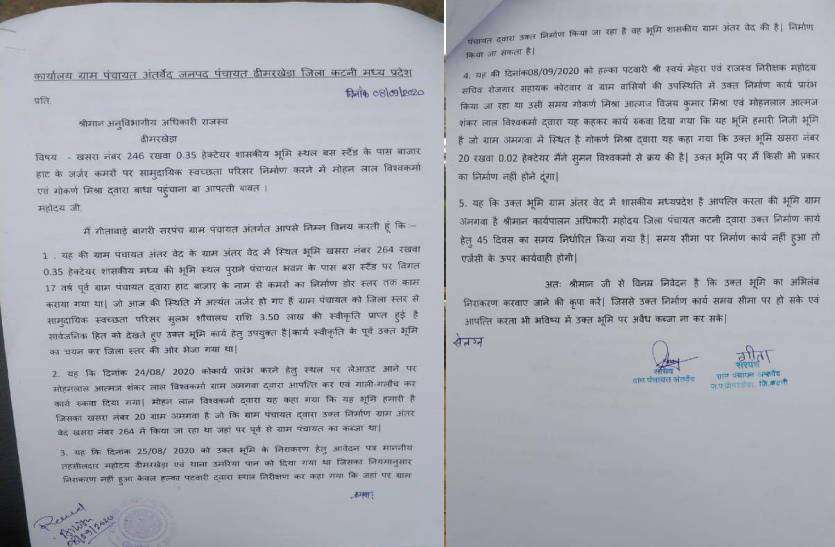 कार्यालय ग्राम पंचायत अंतर्वेद जनपद पंचायत ढीमरखेड़ा जिला कटनी मध्य प्रदेश
दिनांक 08/09/2020
प्रति,
श्रीमान अनुविभागीय अधिकारी राजस्व
ढीमरखेड़ा
विषय - खसरा नंबर 246 रखवा 0.35 हेक्टेयर शासकीय भूमि स्थल बस स्टैंड के पास बाजार
हाट के जर्जर कमरों पर सामुदायिक स्वच्छता परिसर निर्माण करने में मोहन लाल विश्वकर्मा
एवं गोकर्ण मिश्रा द्वारा बाधा पहुंचाना बा आपत्ती बावत ।
महोदय जी,
मैं गीताबाई बागरी सरपंच ग्राम पंचायत अंतर्गत आपसे निम्न विनय करती हूं कि :-
1 . यह की ग्राम पंचायत अंतर वेद के ग्राम अंतर वेद में स्थित भूमि खसरा नंबर 264 रखवा
0.35 हेक्टेयर शासकीय मध्य की भूमि स्थल पुराने पंचायत भवन के पास बस स्टैंड पर विगत
17 वर्ष पूर्व ग्राम पंचायत द्वारा हाट बाजार के नाम से कमरों का निर्माण डोर स्तर तक काम
कराया गया था| जो आज की स्थिति में अत्यंत जर्जर हो गए हैं ग्राम पंचायत को जिला स्तर से
सामुदायिक स्वच्छता परिसर सुलभ शौचालय राशि 3.50 लाख की स्वीकृति प्राप्त हुई है
सार्वजनिक हित को देखते हुए उक्त भूमि कार्य हेतु उपयुक्त है|कार्य स्वीकृति के पूर्व उक्त भूमि
का चयन कर जिला स्तर की ओर भेजा गया था|
2. यह कि दिनांक 24/08/ 2020 कोकार्य प्रारंभ करने हेतु स्थल पर लेआउट आने पर
मोहमलाल आत्मज शंकर लाल विश्वकर्मा ग्राम अमगवा द्वारा आपत्ति कर एवं गाली-गलौच कर
कार्य रुकवा दिया गया| मोहन लाल विश्वकर्मा द्वारा यह कहा गया कि यह भूमि हमारी है
जिसका खसरा नंबर 20 ग्राम अमगवा है जो कि ग्राम पंचायत द्वारा उक्त निर्माण ग्राम अंतर
वेद खसरा नंबर 264 में किया जा रहा था जहां पर पूर्व से ग्राम पंचायत का कब्जा था|
3. यह कि दिनांक 25/08/ 2020 को उक्त भूमि के निराकरण हेतु आवेदन पत्र माननीय
तहसीलदार महोदय ढीमरखेड़ा एवं थाना उमरिया पान को दिया गया था जिसका नियमानुसार
निराकरण नहीं हुआ केवल हल्का पटवारी द्वारा स्थल निरीक्षण कर कहा गया कि जहां पर ग्राम
08/09/2020
पंचायत द्वारा उक्त निर्माण किया जा रहा है वह भूमि शासकीय ग्राम अंतर वेद की है| निर्माण
किया जा सकता है|
4. यह की दिनांक08/09/2020 को हल्का पटवारी श्री स्वयं मेहरा एवं राजस्व निरीक्षक महोदय
सचिव रोजगार सहायक कोटवार व ग्राम वासियों की उपस्थिति में उक्त निर्माण कार्य प्रारंभ
किया जा रहा था उसी समय गोकर्ण मिश्रा आत्मज विजय कुमार मिश्रा एवं मोहनलाल आत्मज
शंकर लाल विश्वकर्मा द्वारा यह कहकर कार्य रुकवा दिया गया कि यह भूमि हमारी निजी भूमि
है जो ग्राम अमगवा में स्थित है गोकर्ण मिश्रा द्वारा यह कहा गया कि उक्त भूमि खसरा नंबर
20 रखवा 0.02 हेक्टेयर मैंने सुमन विश्वकर्मा से क्रय की है| उक्त भूमि पर मैं किसी भी प्रकार
का निर्माण नहीं होने दूंगा|
5. यह कि उक्त भूमि ग्राम अंतर वेद में शासकीय मध्यप्रदेश है आपत्ति करता की भूमि ग्राम
अमगवा है श्रीमान कार्यपालन अधिकारी महोदय जिला पंचायत कटनी द्वारा उक्त निर्माण कार्य
हेतु 45 दिवस का समय निर्धारित किया गया है| समय सीमा पर निर्माण कार्य नहीं हुआ तो
एजेंसी के ऊपर कार्यवाही होगी|
अतः श्रीमान जी से विनम्र निवेदन है कि उक्त भूमि का अभिलंब
निराकरण करवाए जाने की कृपा करें| जिससे उक्त निर्माण कार्य समय सीमा पर हो सके एवं
आपत्ति करता भी भविष्य में उक्त भूमि पर अवैध कब्जा ना कर सके|
संलग्न
सचिव
ग्राम पंचायत अंतर्वेद
गीता
सरपंच
ग्राम पंचायत अन्तर्वेद